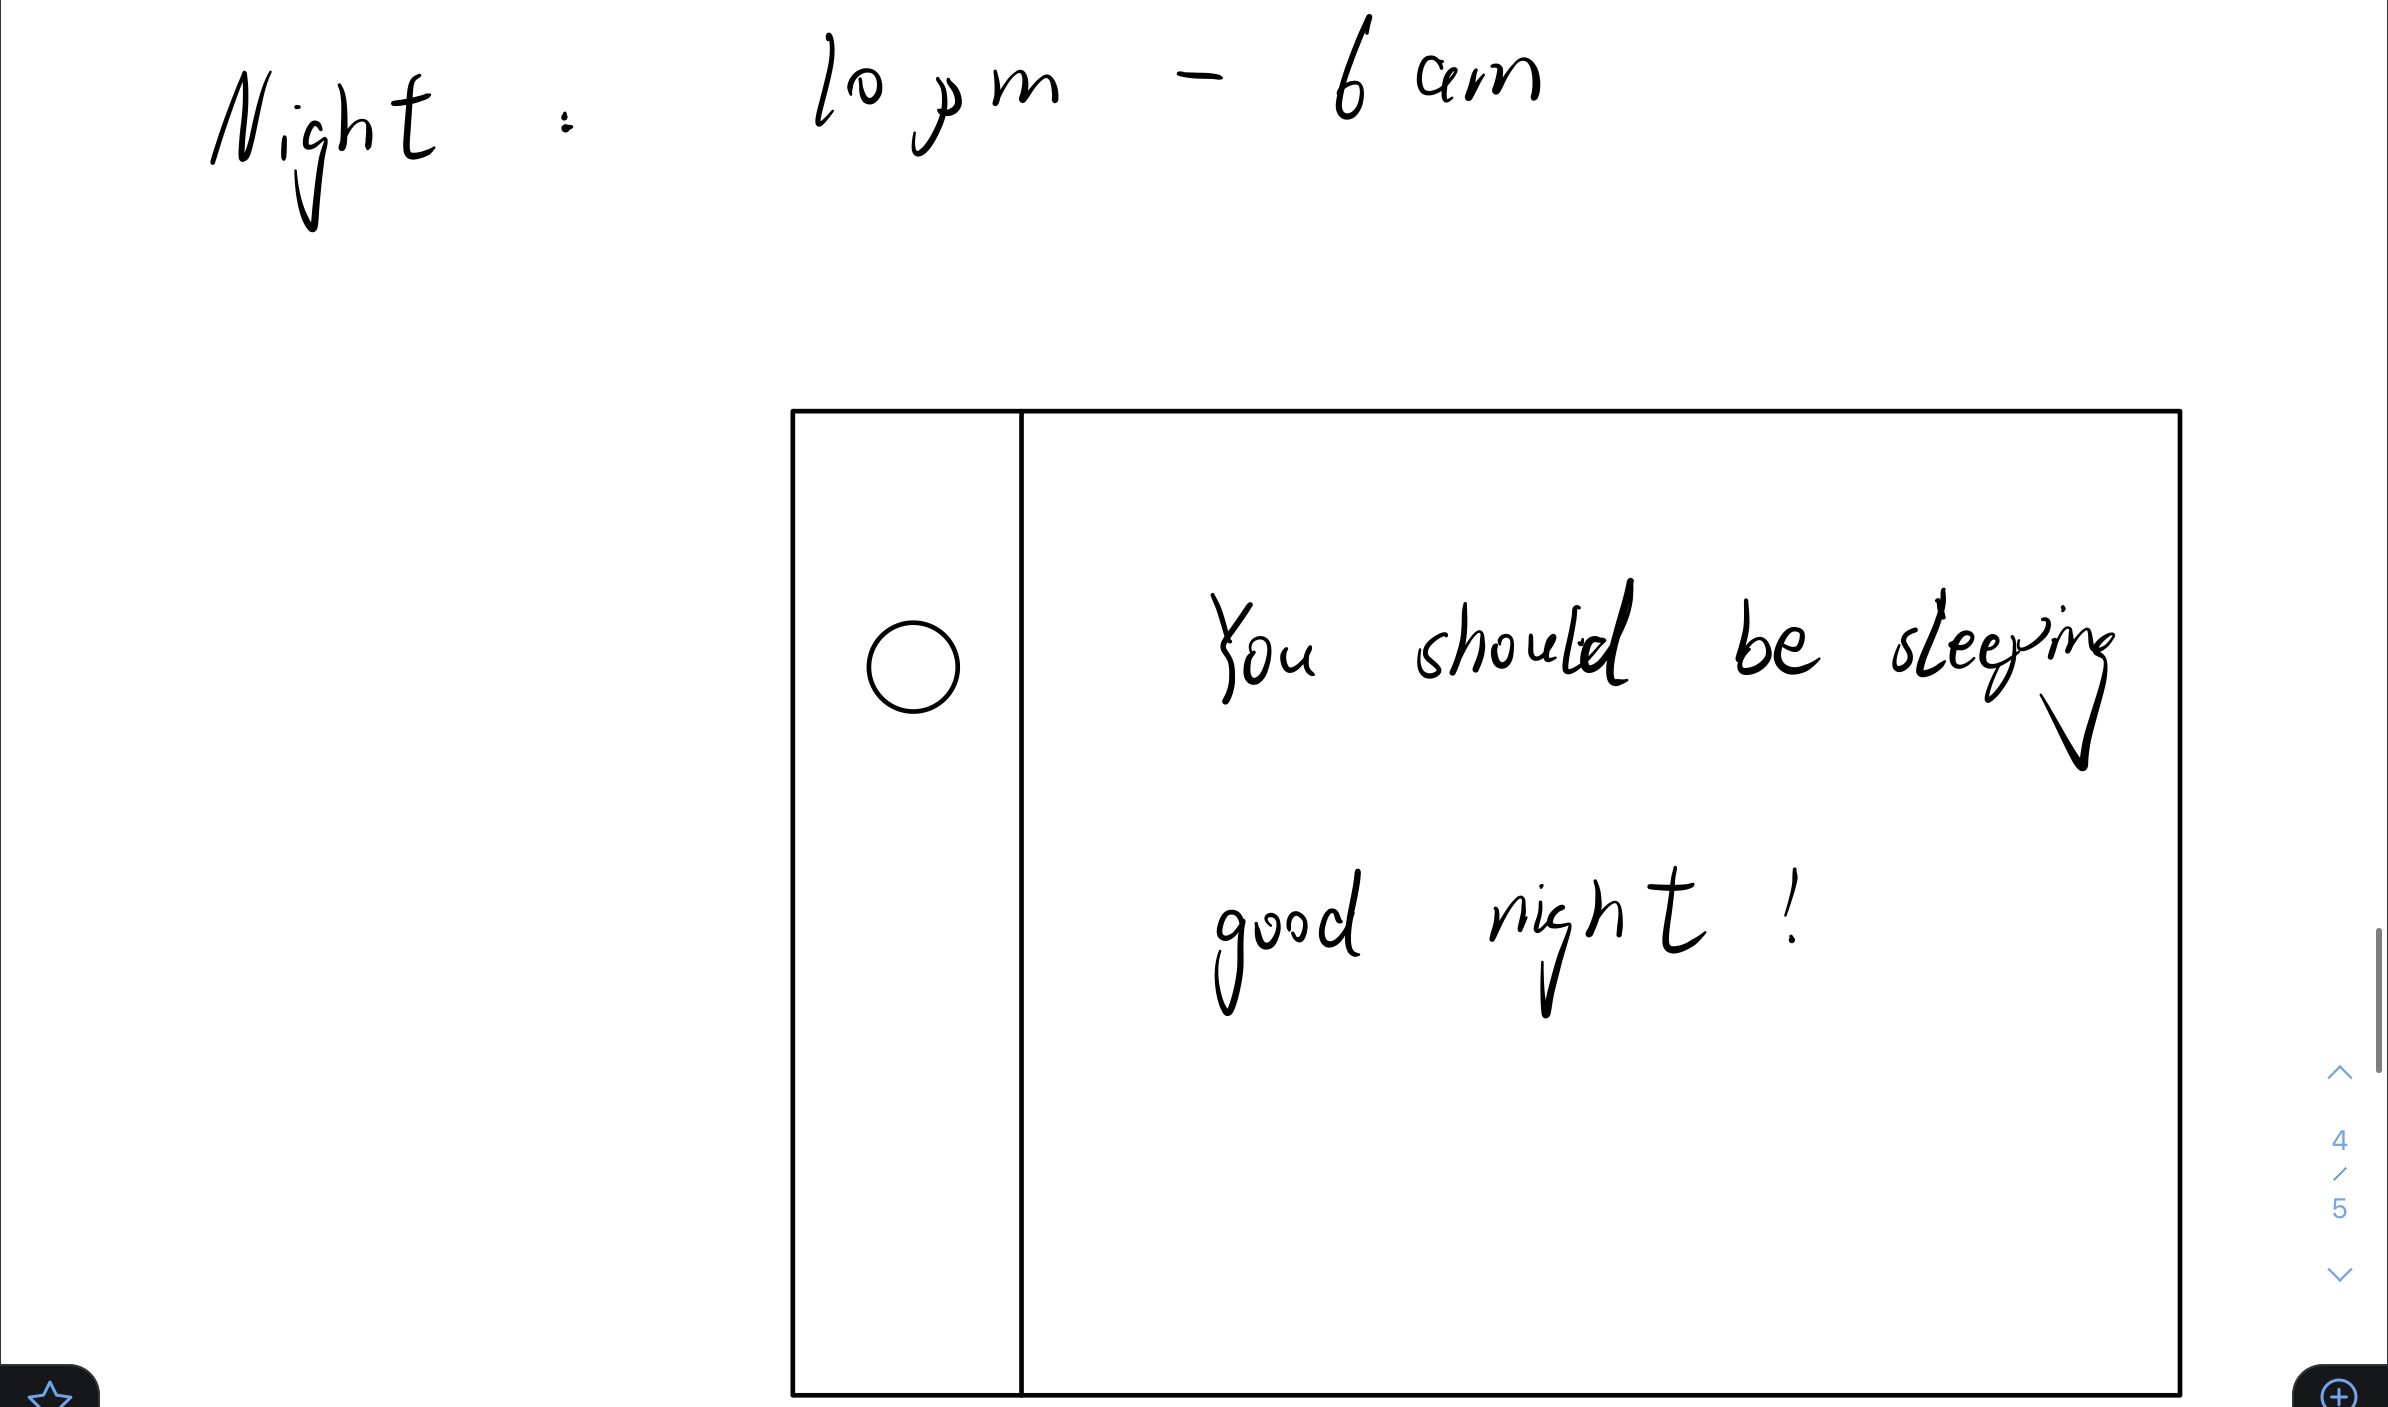 Night : 10 pm - 6 am
You should be sleeping
good night !
4
/
5